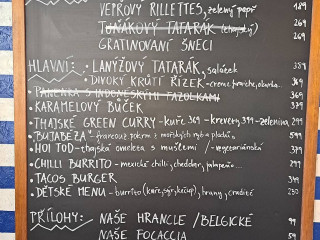 VEPŘOVÝ RILLETTES, zelený pepř 189
TUŇÁKOVÝ TATARÁK 269
GRATINOVANÍ ŠNECI 269
HLAVNÍ: • LANÝŽOVÝ TATARÁK, salášek 329
• DIVOKÝ KRŮTÍ ŘÍZEK - 369
• PANENKA S INDONÉSKÝMI FAZOLKAMI 369
• KARAMELOVÝ BŮČEK 379
• THAJSKÉ GREEN CURRY - kuře 369 - krevety 399 - zelenina 299
• BUJABÉZA francouz. pokrm z mořských ryb a plodů 599
• HOI TOD - thajská omeleta s mušlemi / vegetariánská 379
• CHILLI BURRITO - mexické chilli, cheddar, jalapeño... 299
• TACOS BURGER 349
• DĚTSKÉ MENU - burrito (kuře, sýr, kečup), hrany, 250
PŘÍLOHY: NAŠE HRANCLE / BELGICKÉ 99
NAŠE FOCACCIA 59